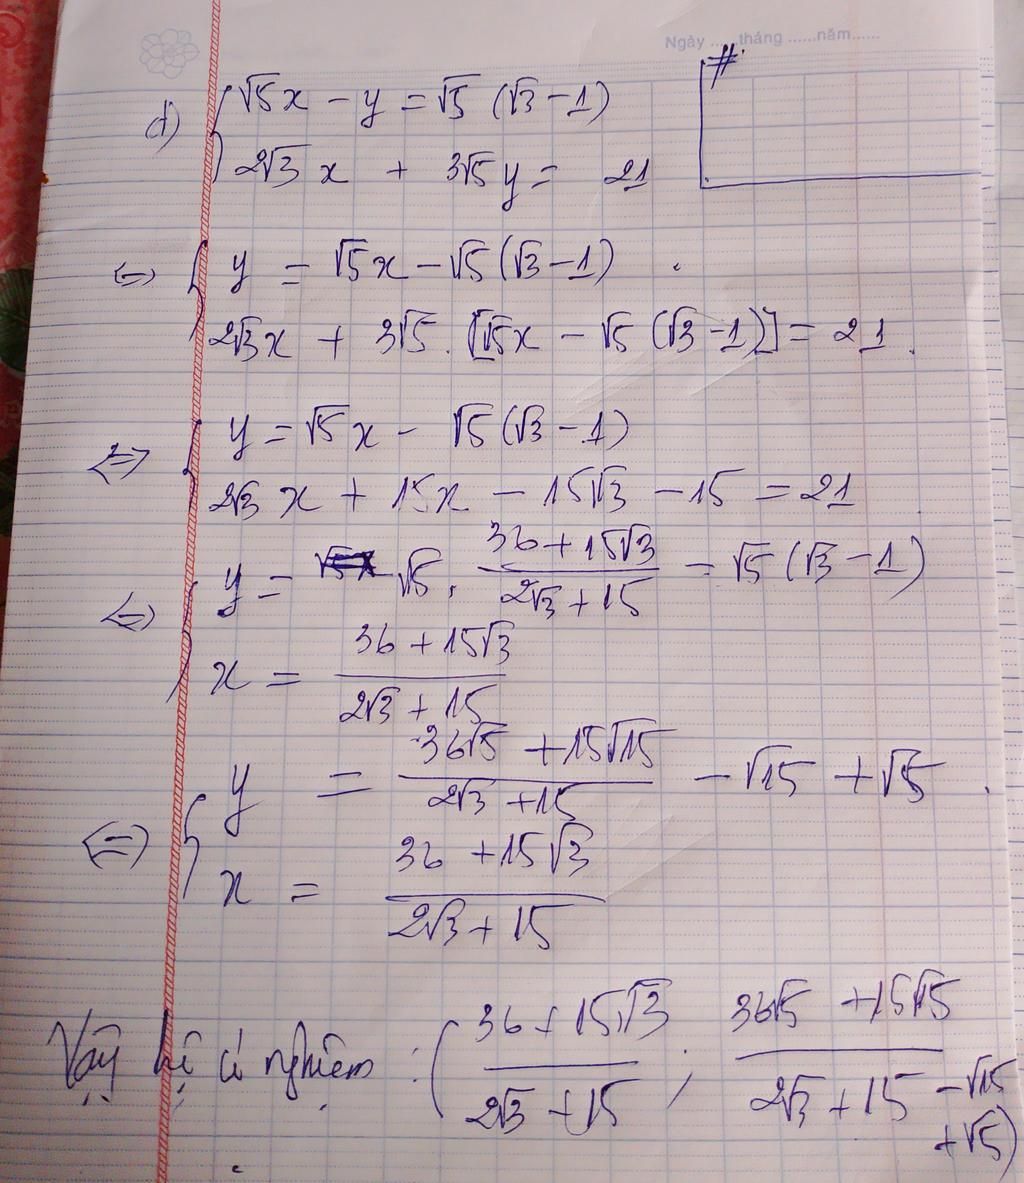 Ngày ..... tháng ...... năm ......
#
d) { √5x - y = √5 (√3 - 1)
2√3 x + 3√5 y = 21
⇔ { y = √5x - √5 (√3 - 1) .
2√3x + 3√5 . [√5x - √5 (√3 - 1)] = 21 .
⇔ { y = √5x - √5 (√3 - 1)
2√3 x + 15x - 15√3 - 15 = 21
⇔ { y = √5 . (36 + 15√3)/(2√3 + 15) - √5 (√3 - 1)
x = (36 + 15√3)/(2√3 + 15)
⇔ { y = (36√5 + 15√15)/(2√3 + 15) - √15 + √5 .
x = (36 + 15√3)/(2√3 + 15)
Vậy hệ có nghiệm : ( (36 + 15√3)/(2√3 + 15) ; (36√5 + 15√15)/(2√3 + 15) - √15
+ √5 )